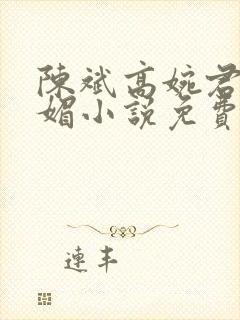 陳斌高婉君
媚小説免費
連丰